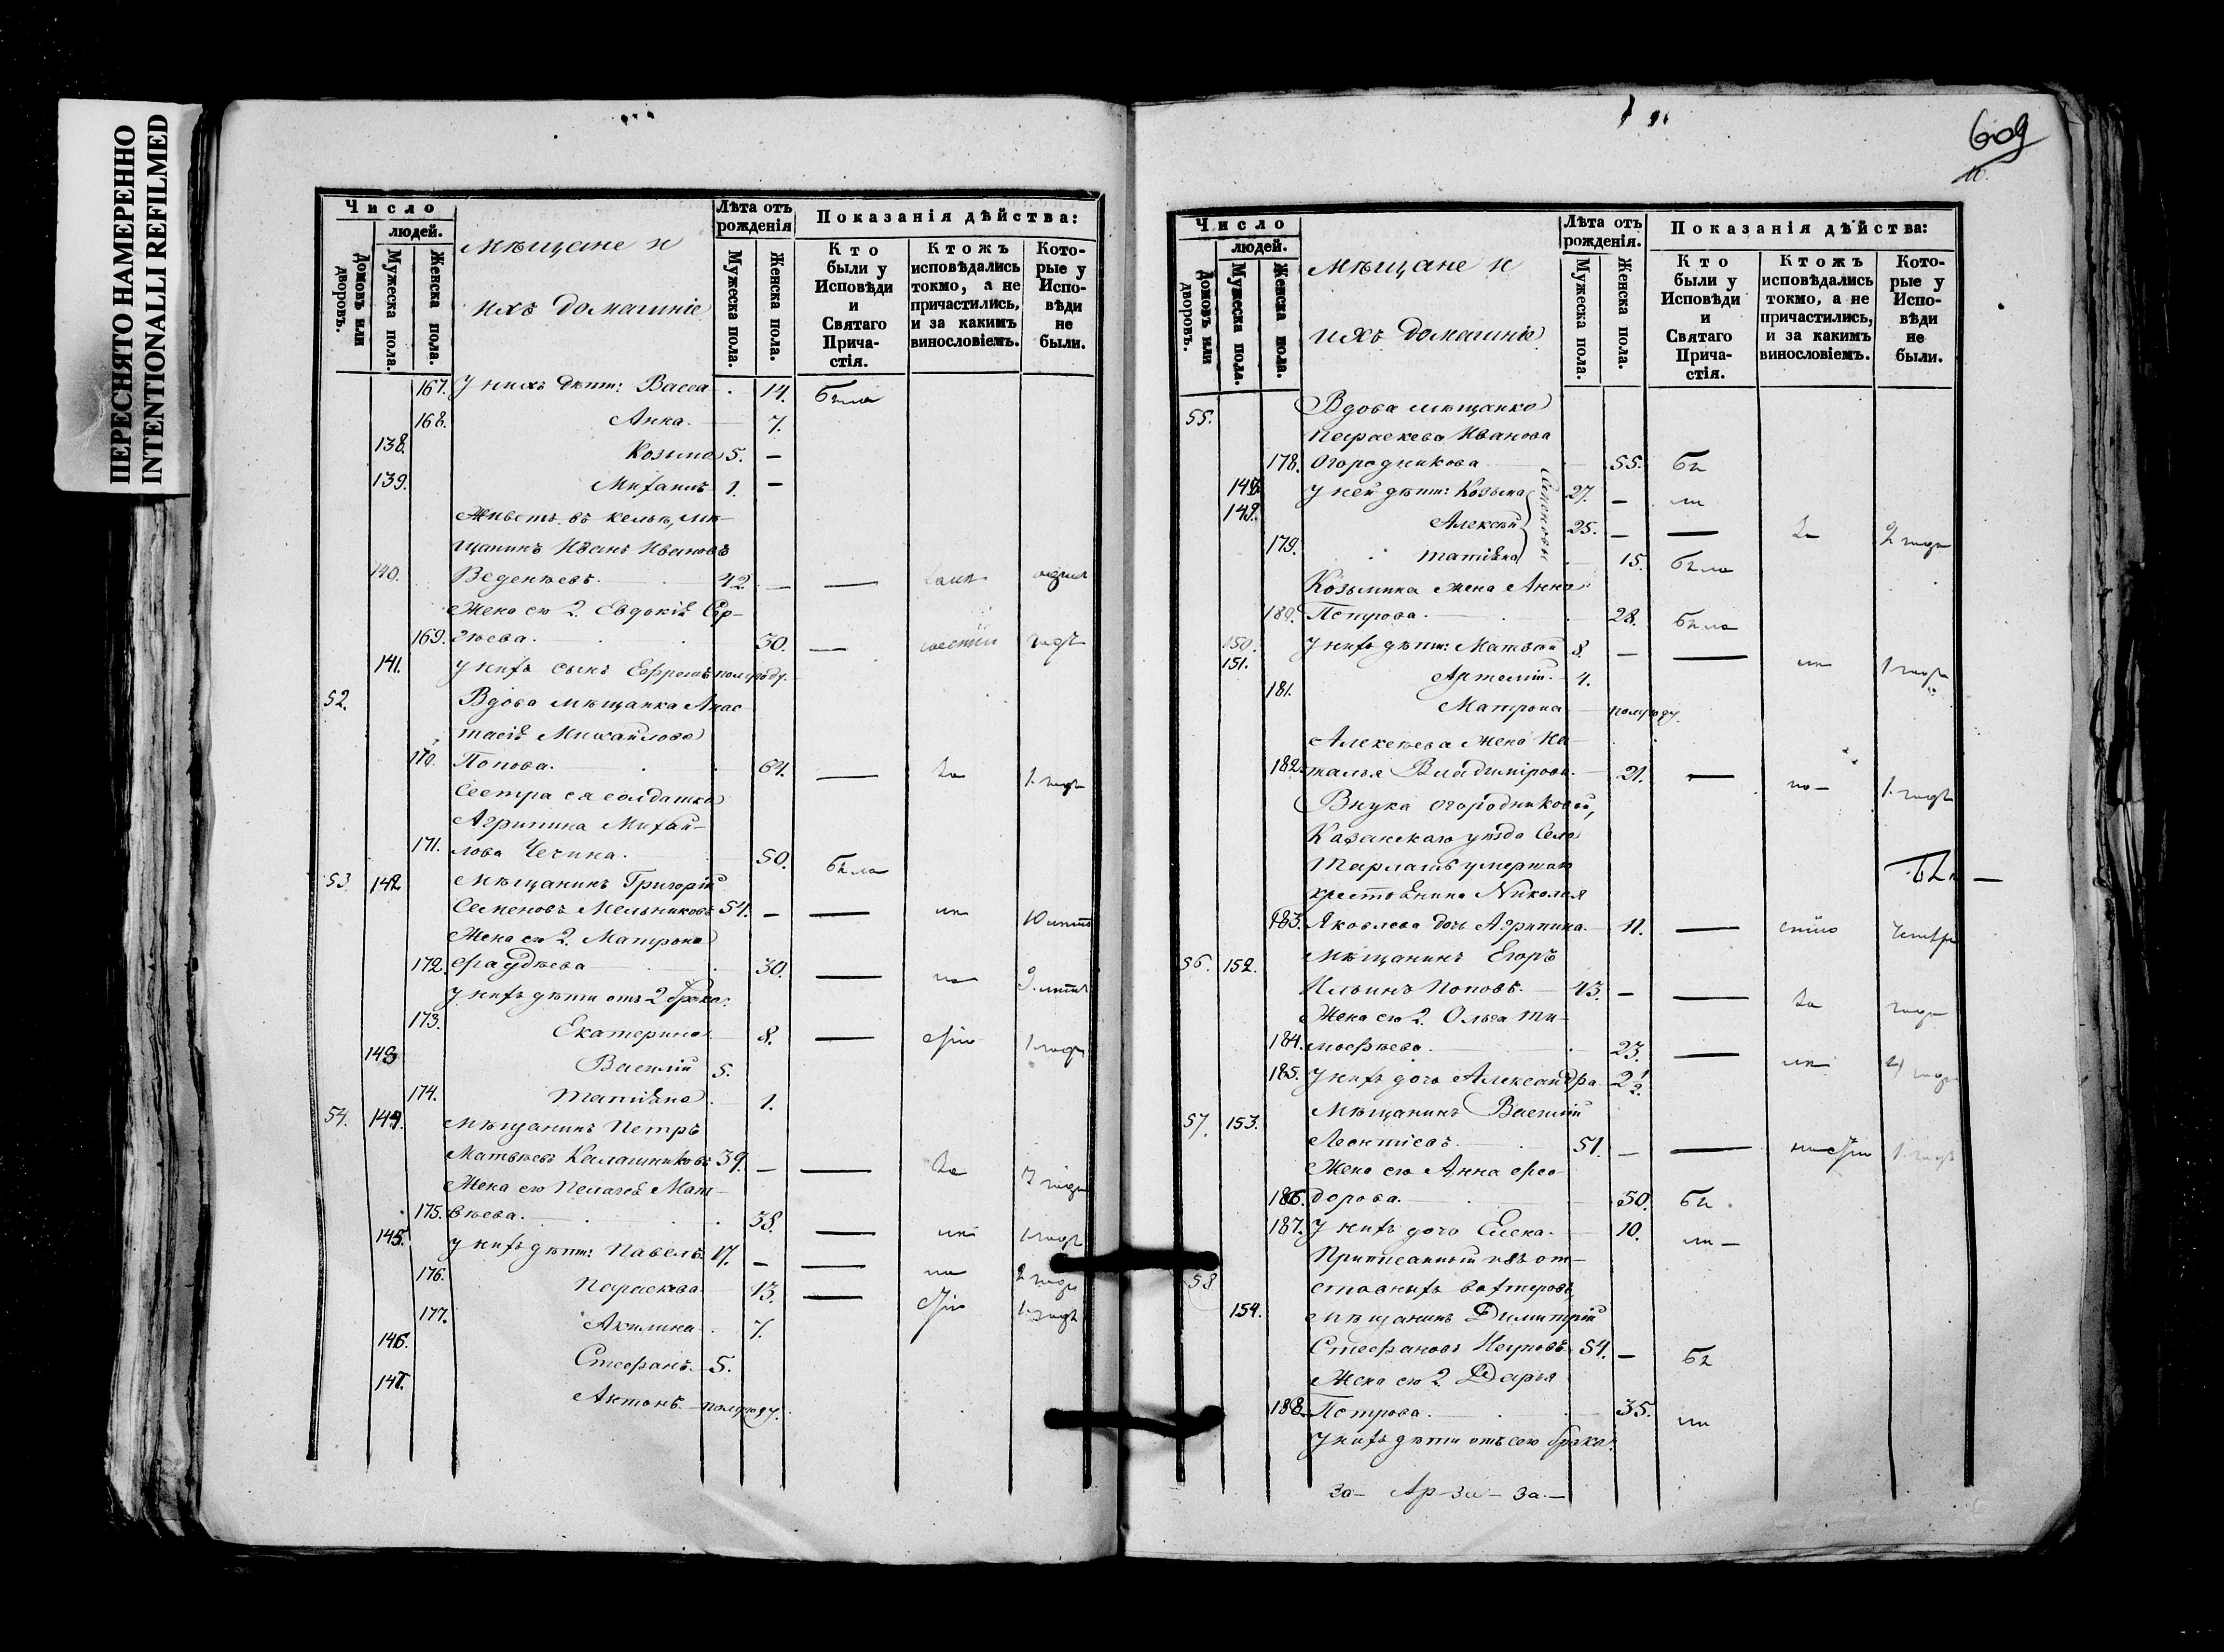 ПЕРЕСНЯТО НАМЕРЕННО
INTENTIONALLI REFILMED
Число
людей.
Домовъ или дворовъ.
Мужеска пола.
Женска пола.
Мѣщане и
ихъ домашніе
Лѣта отъ рожденія
Мужеска пола.
Женска пола.
Показанія дѣйства:
Кто были у Исповѣди и Святаго Прича-стія.
Ктожъ исповѣдались токмо, а не причастились, и за какимъ винословіемъ.
Кото-рые у Испо-вѣди не были.
167. У нихъ дѣти: Васса 14. Была
168. Анна. 7.
138. Козьма 5. —
139. Михаилъ 1. —
Живетъ въ кельѣ, мѣ-
щанинъ Иванъ Ивановъ
140. Веденѣевъ. 42. —
Жена его 2. Евдокія Сер-
169. гѣева. 30. —
141. У нихъ сынъ Ефремъ полугоду.
52. Вдова мѣщанка Анас-
тасія Михайлова
170. Попова. 64. — 1. годъ
Сестра ея солдатка
Агрипина Михай-
171. лова Чечина. 50. Была
53. 142. Мѣщанинъ Григорій
Семеновъ Мельниковъ 54. — — 10 лѣтъ
Жена его 2. Матрона
172. Фадѣева 30. — 9. лѣтъ
У нихъ дѣти отъ 2 брака:
173. Екатерина 8. — 1 годъ
143. Василій 5.
174. Татіяна. 1.
54. 144. Мѣщанинъ Петръ
Матвѣевъ Калашниковъ 39. — —
Жена его Пелагея Мат-
175. вѣева. 38. — 1 годъ
145. У нихъ дѣти: Павелъ. 17. — — 2 года
176. Параскева 13. — 1 годъ
177. Акилина 7.
146. Стефанъ. 5.
147. Антонъ. полугоду.
609
Число
людей.
Домовъ или дворовъ.
Мужеска пола.
Женска пола.
Мѣщане и
ихъ домашніе
Лѣта отъ рожденія.
Мужеска пола.
Женска пола.
Показанія дѣйства:
Кто были у Исповѣди и Святаго Прича-стія.
Ктожъ исповѣдались токмо, а не причастились, и за какимъ винословіемъ.
Кото-рые у Испо-вѣди не были.
55. Вдова мѣщанка
Параскева Иванова
178. Огородникова 55.
148. У ней дѣти: Козьма 27. —
149. Алексѣй 25. — — 2 года
179. Татіяна 15. Была
Семеновы
Козьмина жена Анна
180. Петрова. 28. Была
150. У нихъ дѣти: Матвѣй 8. — — 1 годъ
151. Артемій. 4.
181. Матрона полугоду.
Алексѣева жена На-
182. талья Владимірова. 21. — 1. годъ
Внука Огородниковой,
Казанскаго уѣзда Села
Тарлашъ умершаго
крестьянина Николая
183. Яковлева дочь Агрипина. 11. —
56. 152. Мѣщанинъ Егоръ
Ильинъ Поповъ. 43. — —
Жена его 2. Ольга Ти-
184. мофѣева. 23. —
185. У нихъ дочь Александра 2 1/2.
57. 153. Мѣщанинъ Василій
Леонтіевъ. 51. — — 1. годъ
Жена его Анна Фео-
186. дорова. 50.
187. У нихъ дочь Елена. 10.
58 Приписанный изъ от-
ставныхъ вахтеровъ
154. Мѣщанинъ Димитрій
Стефановъ 54. —
Жена его 2. Дарья
188. Петрова. 35.
У нихъ дѣти отъ сего брака: